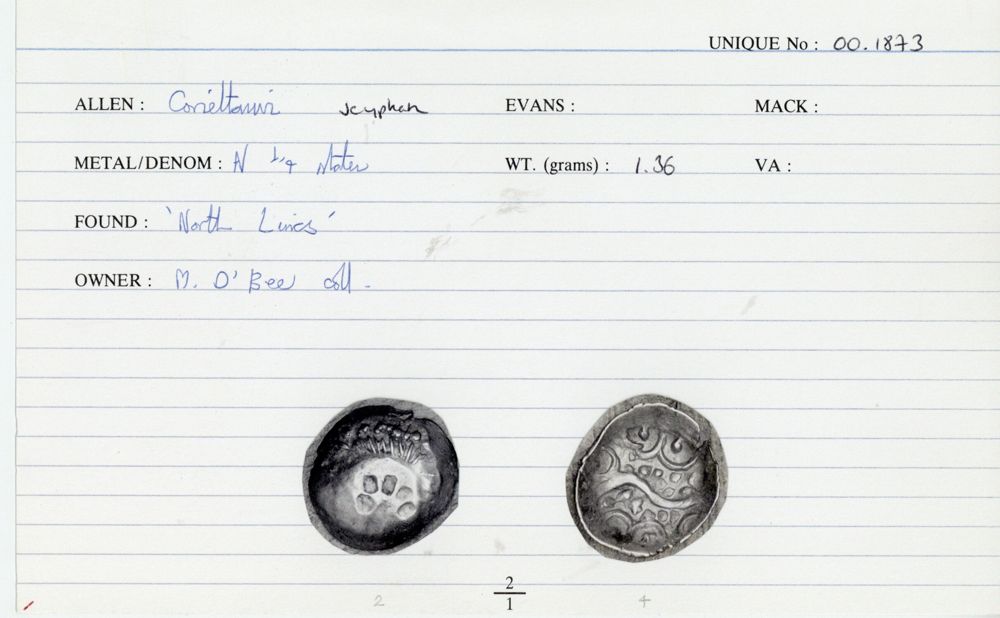 UNIQUE No : 00.1873
ALLEN : Corieltauvi scyphate EVANS : MACK :
METAL/DENOM : N 1/4 stater WT. (grams) : 1.36 VA :
FOUND : 'North Lincs'
OWNER : M. O'Bee coll.
2
1
2 4